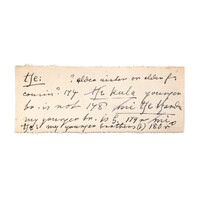 tfe: ? elder sister or elder f
cousin? 174 tfe kule younger
br. is not 148 mi tfe
my younger br. is 179 mi
tfe: my younger brothers 180